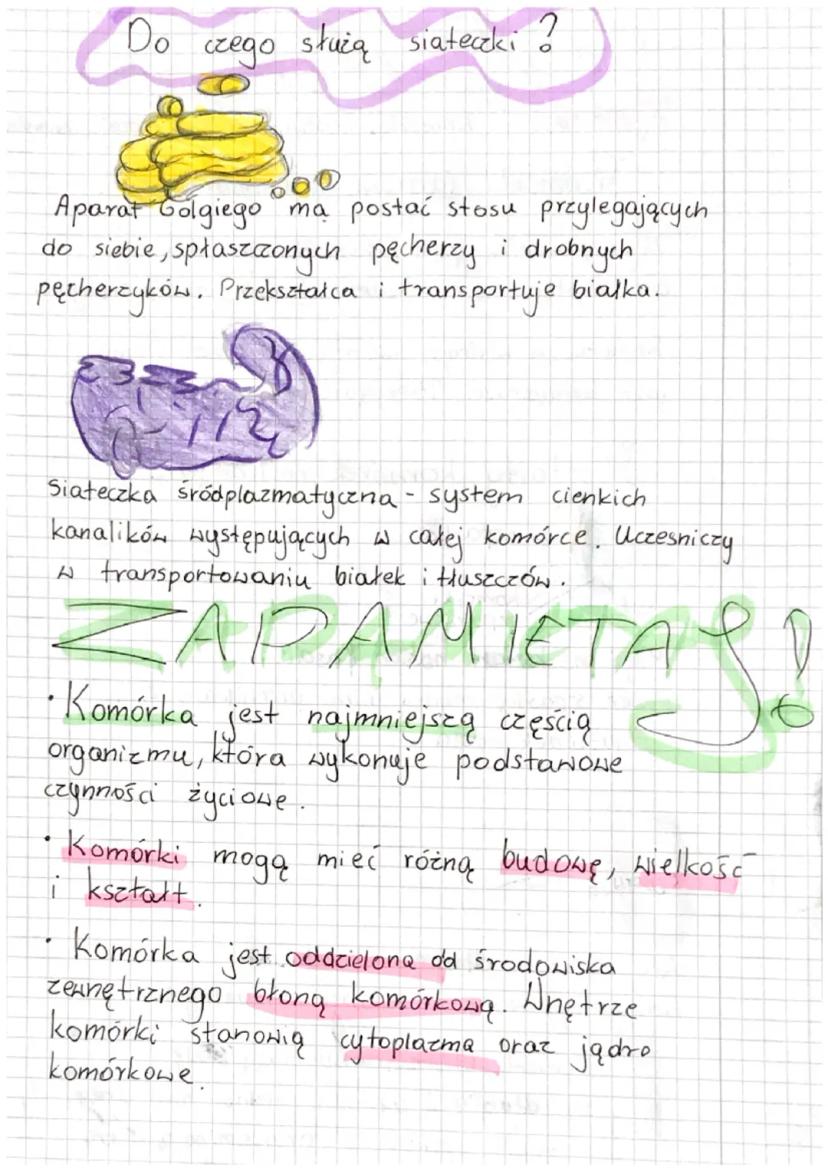 Do czego służą siateczki?
Aparat Golgiego ma postać stosu przylegających
do siebie, spłaszczonych pęcherzy i drobnych
pęcherzyków. Przekształca i transportuje białka.
Siateczka śródplazmatyczna - system cienkich
kanalików występujących w całej komórce. Uczesniczy
w transportowaniu białek i tłuszczów.
ZAPAMIETAJ!
• Komórka jest najmniejszą częścią
organizmu, która wykonuje podstawowe
czynności życiowe.
• Komórki mogą mieć różną budowę, wielkość
i kształt.
• Komórka jest oddzielona od środowiska
zewnętrznego błoną komórkową. Wnętrze
komórki stanowią cytoplazma oraz jądro
komórkowe.